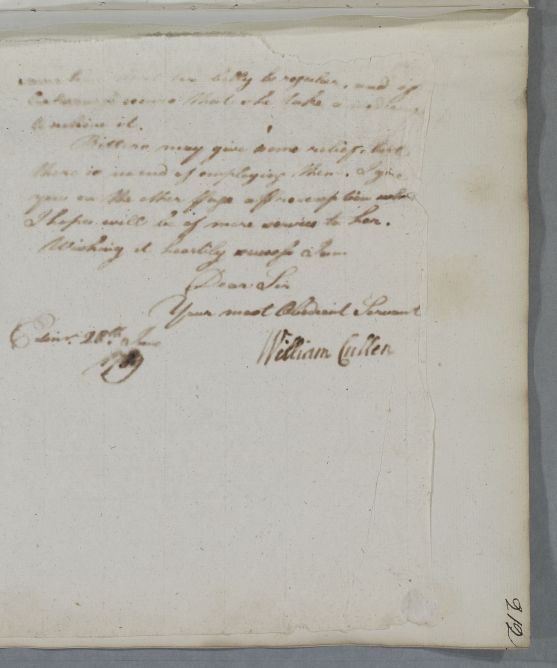 her belly be regular, and if
that she take a
to relieve it.
Bitters may give some relief, but
there is no end of employing them. I give
you on the other page a prescription which
I hope will be of more service to her.
Wishing it heartily success I am
Dear Sir
Your most Obedient Servant
Edinr. 28th June
William Cullen
212